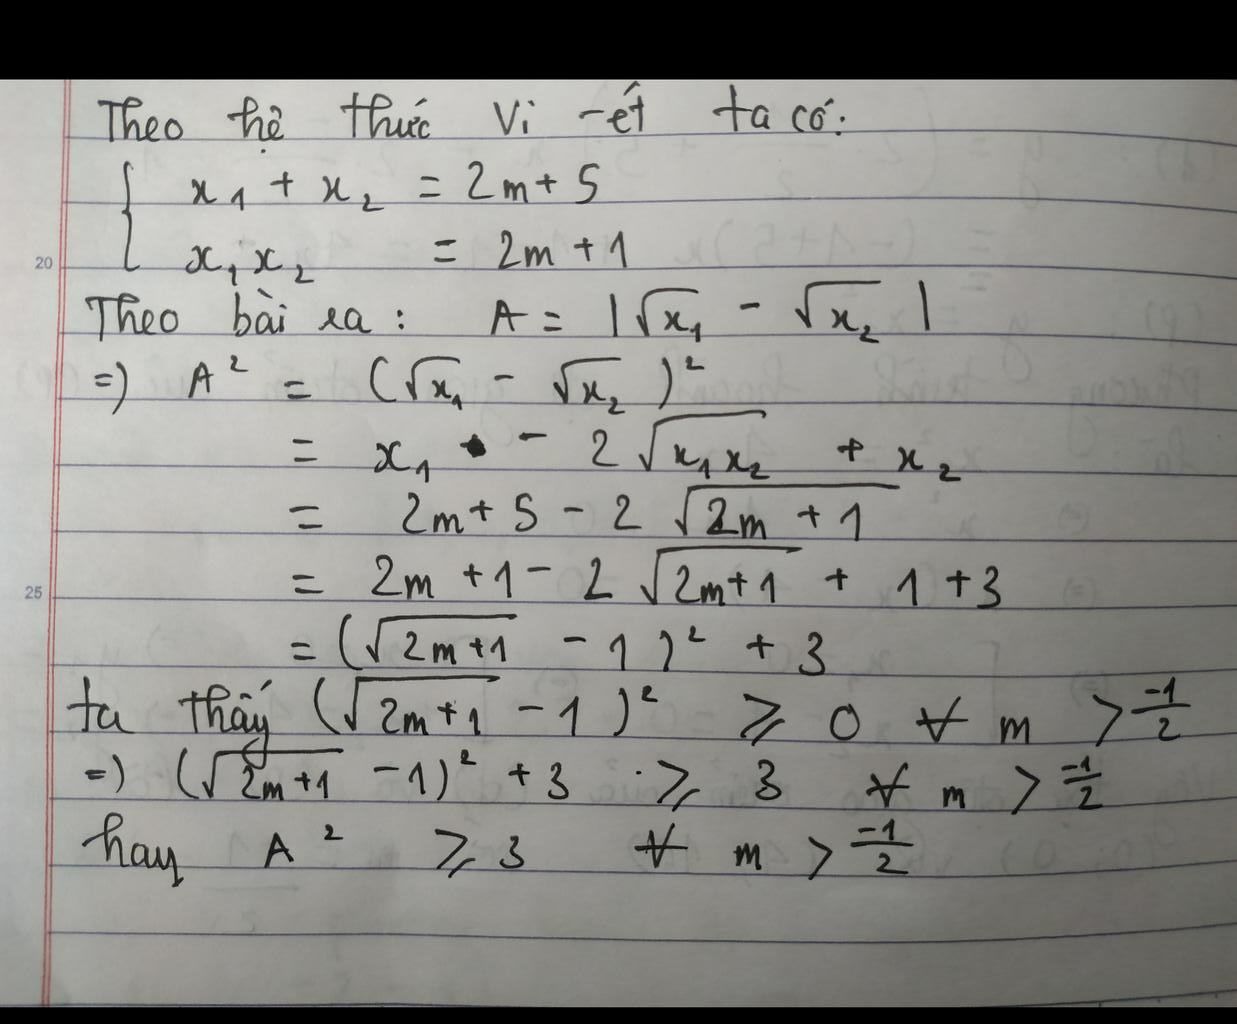 Theo hệ thức Vi-ét ta có:
x₁ + x₂ = 2m + 5
20
x₁x₂ = 2m + 1
Theo bài ra: A = |√x₁ - √x₂|
=) A² = (√x₁ - √x₂)²
= x₁ - 2√x₁x₂ + x₂
= 2m + 5 - 2√2m + 1
25
= 2m + 1 - 2√2m+1 + 1 + 3
= (√2m+1 - 1)² + 3
ta thấy (√2m+1 - 1)² ≥ 0 ∀ m > -1/2
=) (√2m+1 - 1)² + 3 ≥ 3 ∀ m > -1/2
hay A² ≥ 3 ∀ m > -1/2